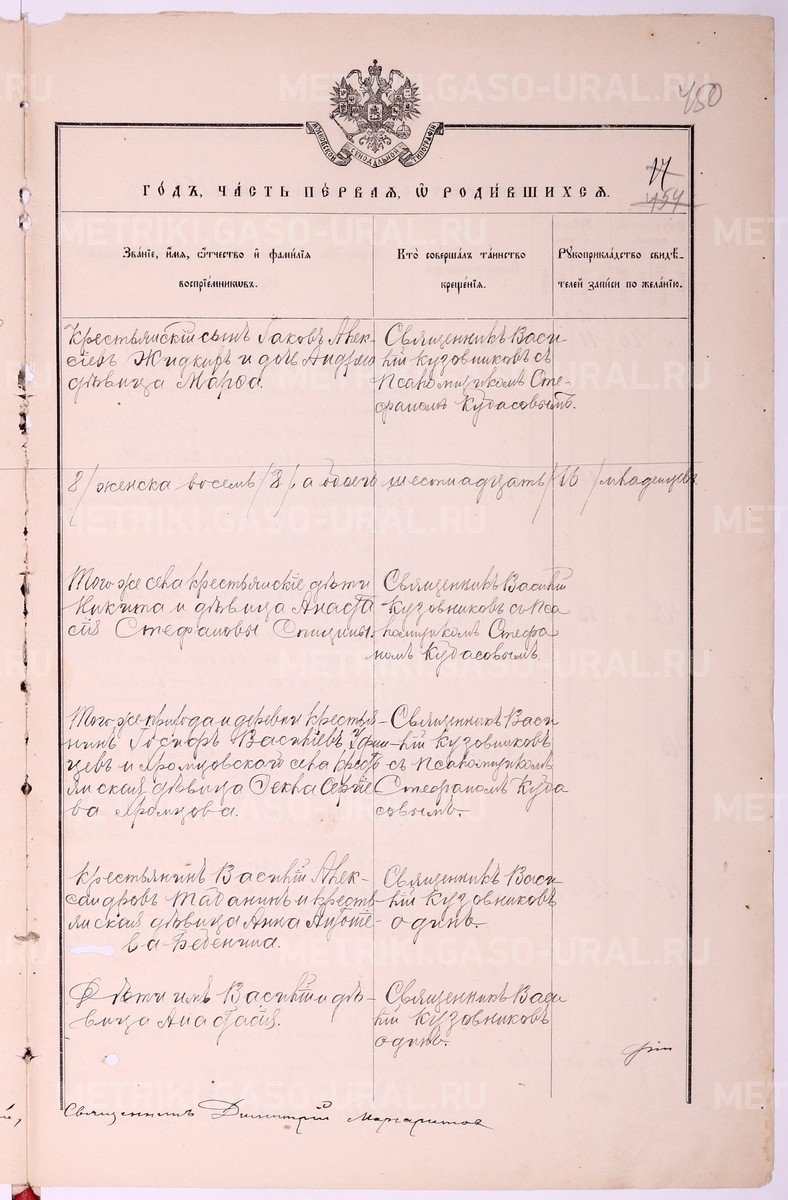 450
МОСКОВСКОЙ СѴНОДАЛЬНОЙ ТИПОГРАФІИ
17
454
ГО́ДЪ, ЧА́СТЬ ПЕ́РВАЯ, Ѽ РОДИ́ВШИХСЯ.
Зва́нїе, и҆́мя, ѻ҆́тчество и҆ фами́лїя
воспрїе́мникѡвъ.
Кто̀ соверша́лъ та́инство
креще́нїя.
Рꙋкоприкла́дство свидѣ́-
телей за́писи по жела́нїю.
Крестьянскій сынъ Іаковъ Алек-
сіевъ Жидкихъ и дочь Андрея
дѣвица Марѳа.
Священникъ Васи-
лій Кузовниковъ съ
Псаломщикомъ Сте-
фаномъ Кудасовымъ.
8/ женска восемь /8/, а обоего шестнадцать /16/ младенцевъ
Того же села крестьянскіе дѣти
Никита и дѣвица Анаста
сія Стефановы Спицыны.
Священникъ Василій
Кузовниковъ съ Пса
ломщикомъ Стефа
номъ Кудасовымъ.
Того же прихода и деревни крестья
нинъ Іосифъ Васильевъ
цевъ и Хромцовскаго села крестья
янская дѣвица Ѳекла Сергіе
ва Хромцова.
Священникъ Васи
лій Кузовниковъ
съ Псаломщикомъ
Стефаномъ Куда
совымъ.
Крестьянинъ Василій Алек-
сандровъ Табанинъ и кресть
янская дѣвица Анна Антоніе-
ва Феденина.
Священникъ Васи
лій Кузовниковъ
одинъ.
Дѣти ихъ Василій и дѣ-
вица Анастасія.
Священникъ Васи
лій Кузовниковъ
одинъ.
Священникъ Димитрій Маргаритовъ
METRIKI.GASO-URAL.RU